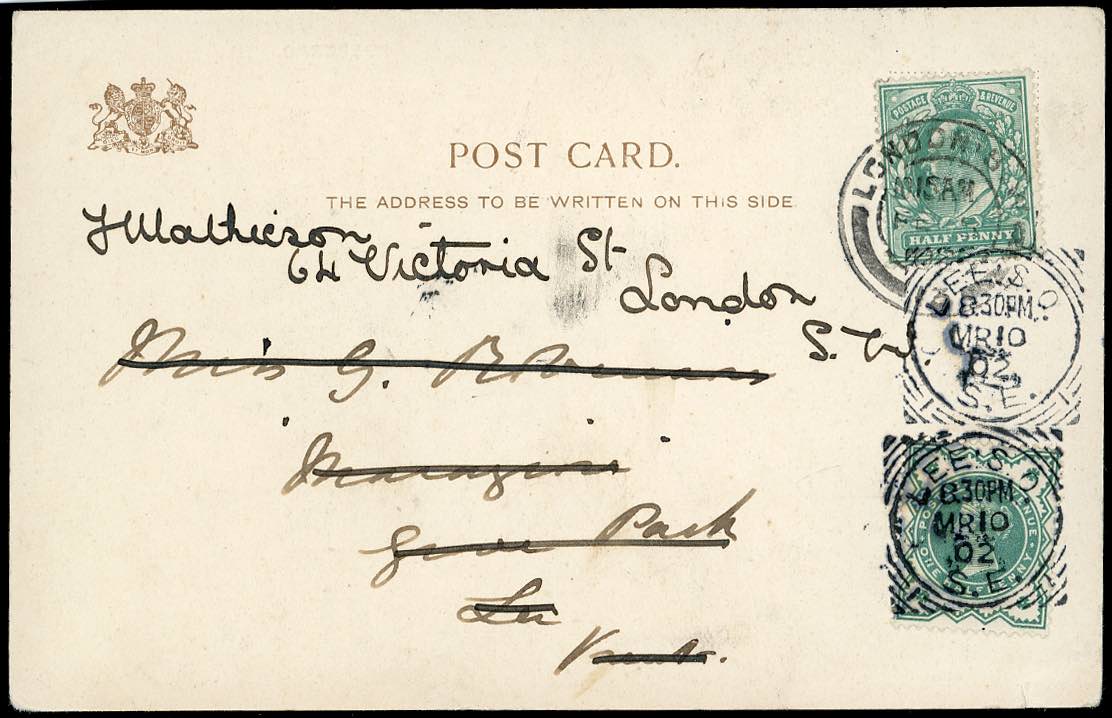 POST CARD.
THE ADDRESS TO BE WRITTEN ON THIS SIDE
POSTAGE & REVENUE
HALF PENNY
LONDON
15AM
J Mathieson
64 Victoria St
London
S.W
Miss G.
Grove Park
Lee
Kent.
LEE S.O
8.30PM
MR10
02
S.E.
LEE S.O
8.30PM
MR10
02
S.E.